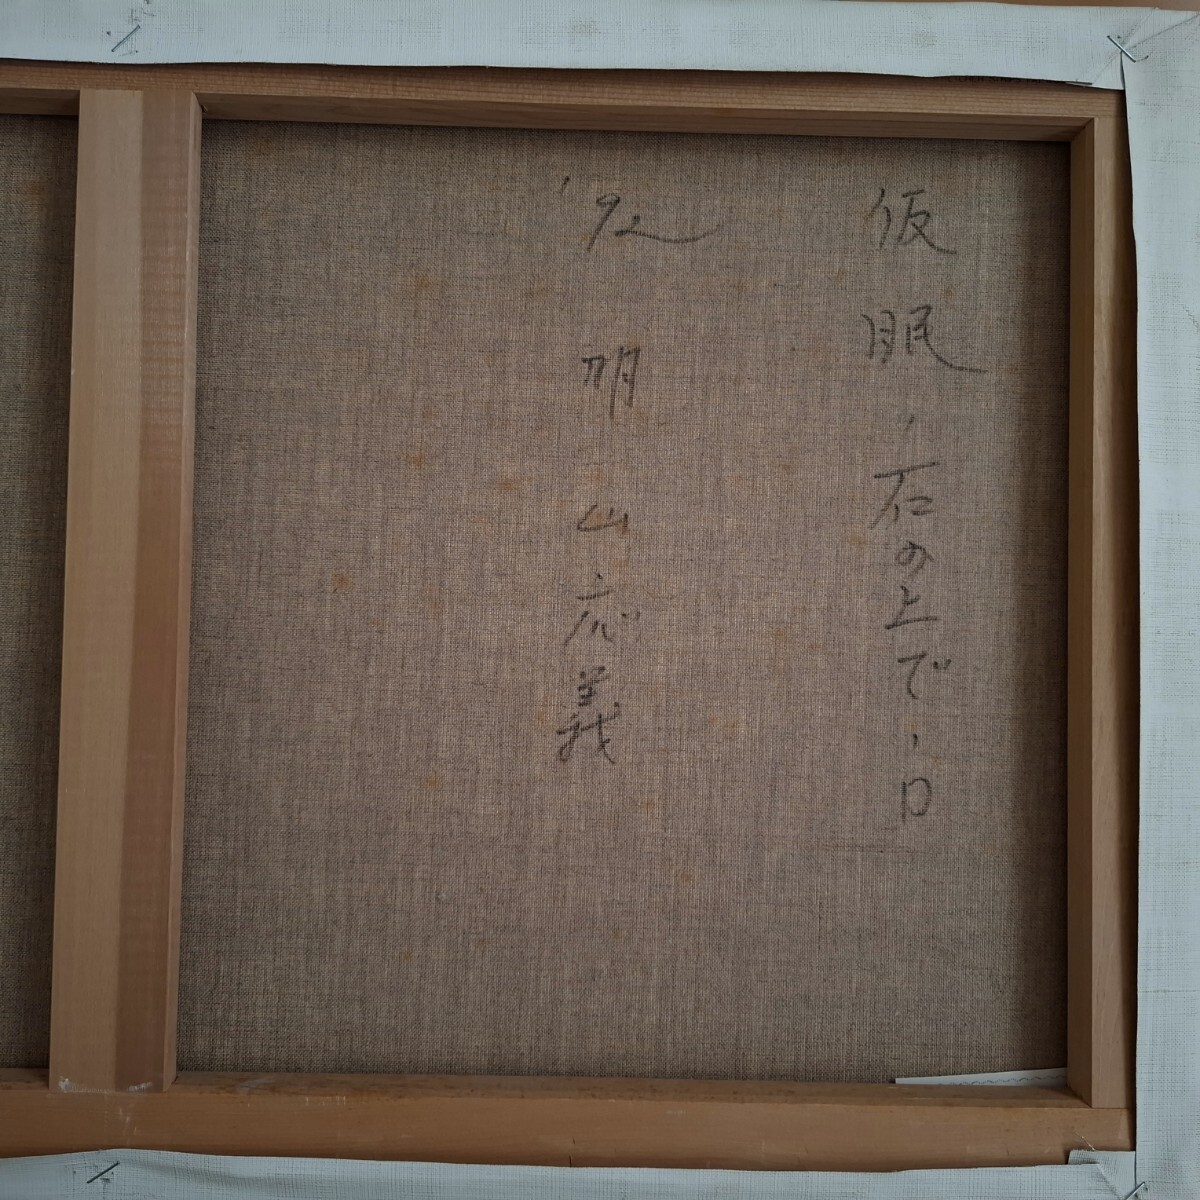 仮眠、石の上で、口
'92
明山応義